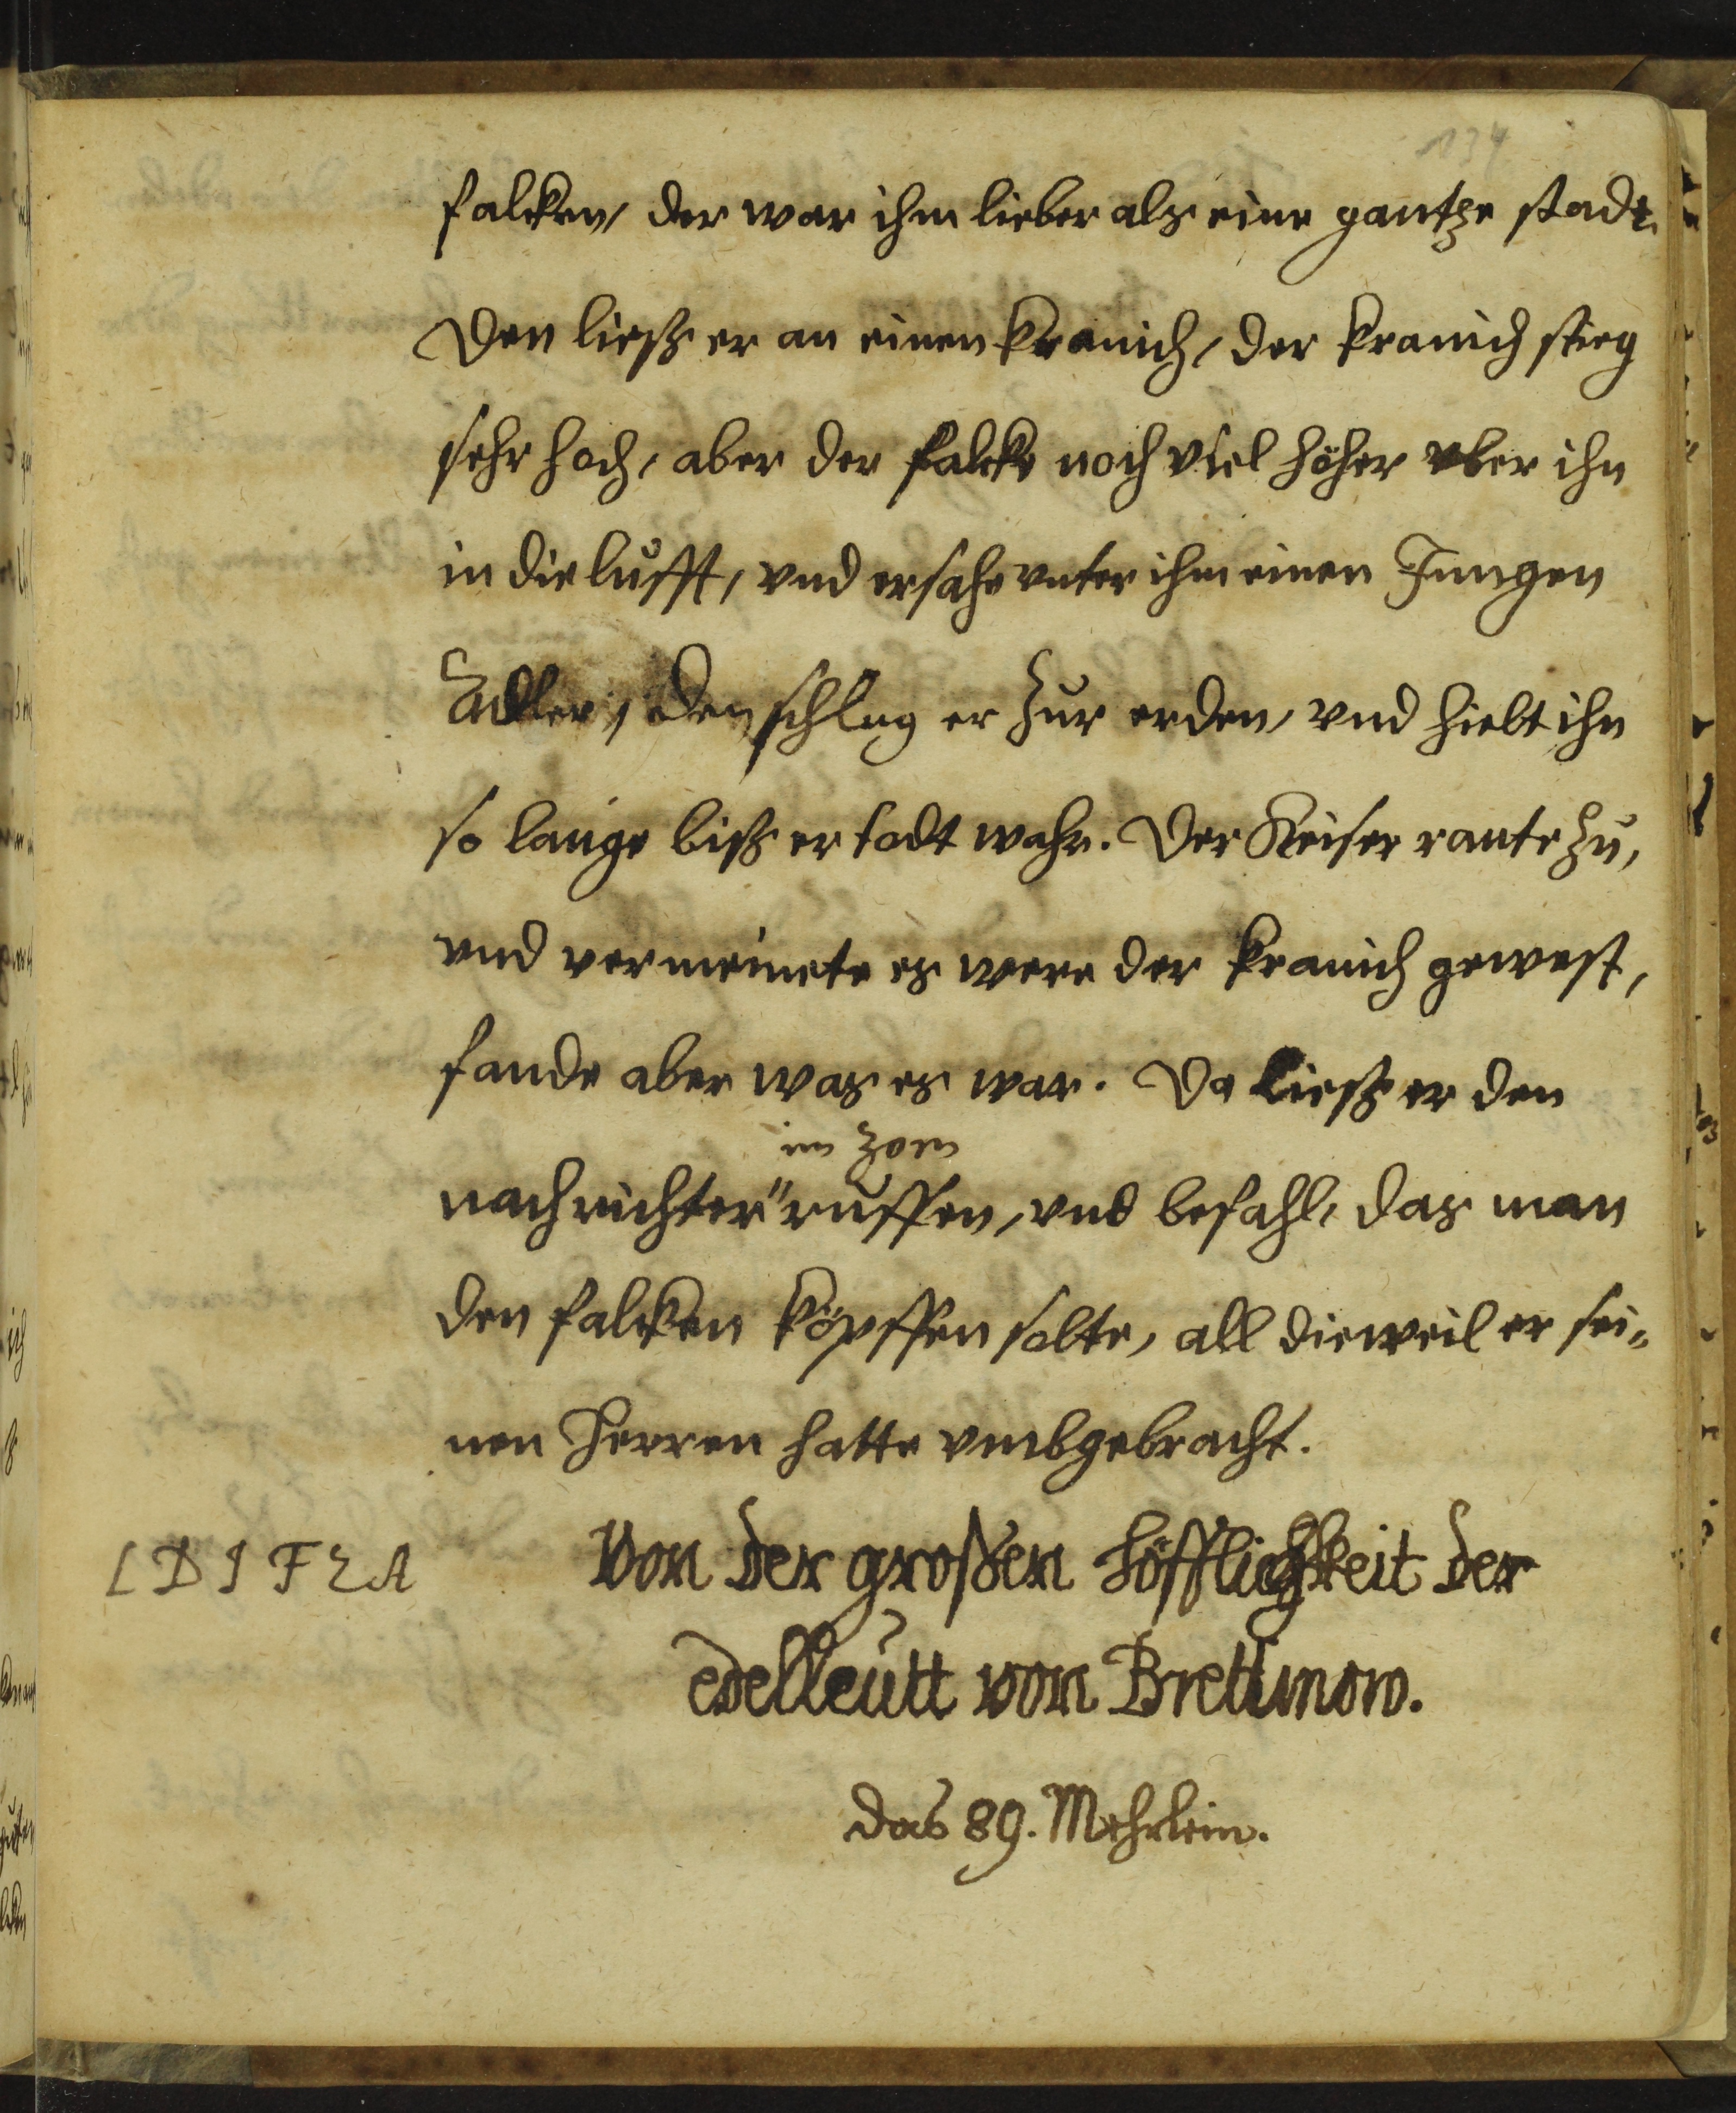 134
falcken, der war ihm lieber als eine gantze stadt.
Den liesz er an einen kranich, der kranich stieg
sehr hoch, aber der falcke noch viel höher vber ihn
in die lufft, vnd ersahe vnter ihm einen Jungen
Adler, den schlug er zur erden, vnd hielt ihn
so lange bisz er todt wahr. Der Keiser rante zu,
vnd vermeinete es were der kranich gewest,
fande aber was es war. Da liesz er den
im zorn
nachrichter" ruffen, vnd befahl, das man
den falcken köpffen solte, all dieweil er sei-
nen Herren hatte vmbgebracht.
LDIFEA
Von der großen höfflichkeit der
edelleutt von Brettinoro.
das 89. Mehrlein.